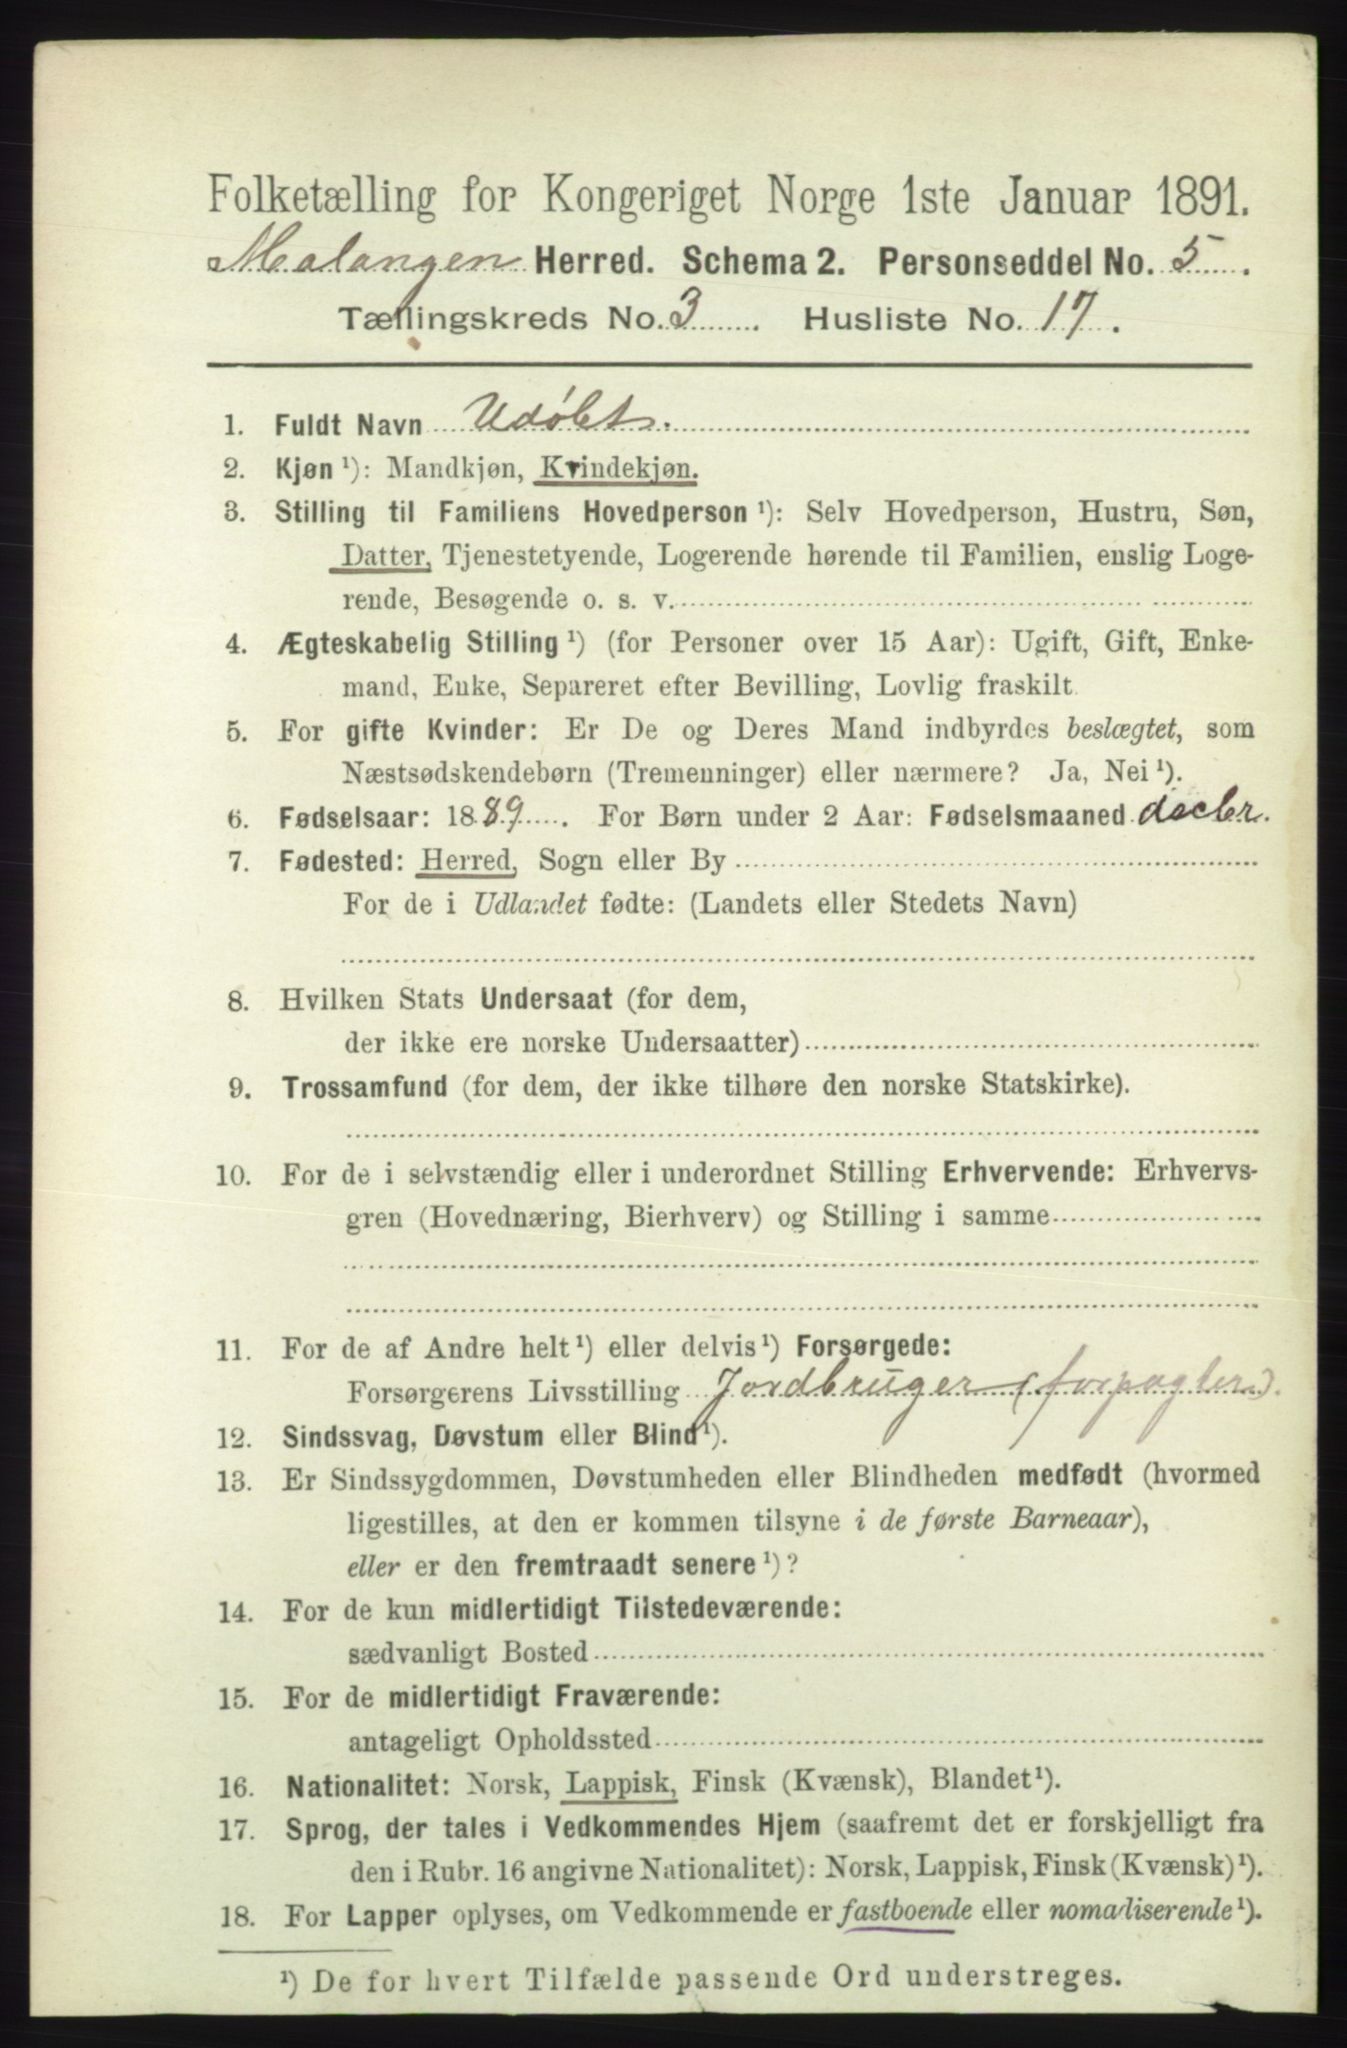 Folketælling for Kongeriget Norge 1ste Januar 1891.
Malangen Herred. Schema 2. Personseddel No. 5.
Tællingskreds No. 3. Husliste No. 17.
1. Fuldt Navn Udøbt.
2. Kjøn ¹): Mandkjøn, Kvindekjøn.
3. Stilling til Familiens Hovedperson ¹): Selv Hovedperson, Hustru, Søn,
Datter, Tjenestetyende, Logerende hørende til Familien, enslig Loge-
rende, Besøgende o. s. v.
4. Ægteskabelig Stilling ¹) (for Personer over 15 Aar): Ugift, Gift, Enke-
mand, Enke, Separeret efter Bevilling, Lovlig fraskilt
5. For gifte Kvinder: Er De og Deres Mand indbyrdes beslægtet, som
Næstsødskendebørn (Tremenninger) eller nærmere? Ja, Nei ¹).
6. Fødselsaar: 1889. For Børn under 2 Aar: Fødselsmaaned decbr.
7. Fødested: Herred, Sogn eller By
For de i Udlandet fødte: (Landets eller Stedets Navn)
8. Hvilken Stats Undersaat (for dem,
der ikke ere norske Undersaatter)
9. Trossamfund (for dem, der ikke tilhøre den norske Statskirke).
10. For de i selvstændig eller i underordnet Stilling Erhvervende: Erhvervs-
gren (Hovednæring, Bierhverv) og Stilling i samme
11. For de af Andre helt ¹) eller delvis ¹) Forsørgede:
Forsørgerens Livsstilling Jordbruger (forpagter).
12. Sindssvag, Døvstum eller Blind ¹).
13. Er Sindssygdommen, Døvstumheden eller Blindheden medfødt (hvormed
ligestilles, at den er kommen tilsyne i de første Barneaar),
eller er den fremtraadt senere ¹)?
14. For de kun midlertidigt Tilstedeværende:
sædvanligt Bosted
15. For de midlertidigt Fraværende:
antageligt Opholdssted
16. Nationalitet: Norsk, Lappisk, Finsk (Kvænsk), Blandet ¹).
17. Sprog, der tales i Vedkommendes Hjem (saafremt det er forskjelligt fra
den i Rubr. 16 angivne Nationalitet): Norsk, Lappisk, Finsk (Kvænsk) ¹).
18. For Lapper oplyses, om Vedkommende er fastboende eller nomadiserende ¹).
¹) De for hvert Tilfælde passende Ord understreges.